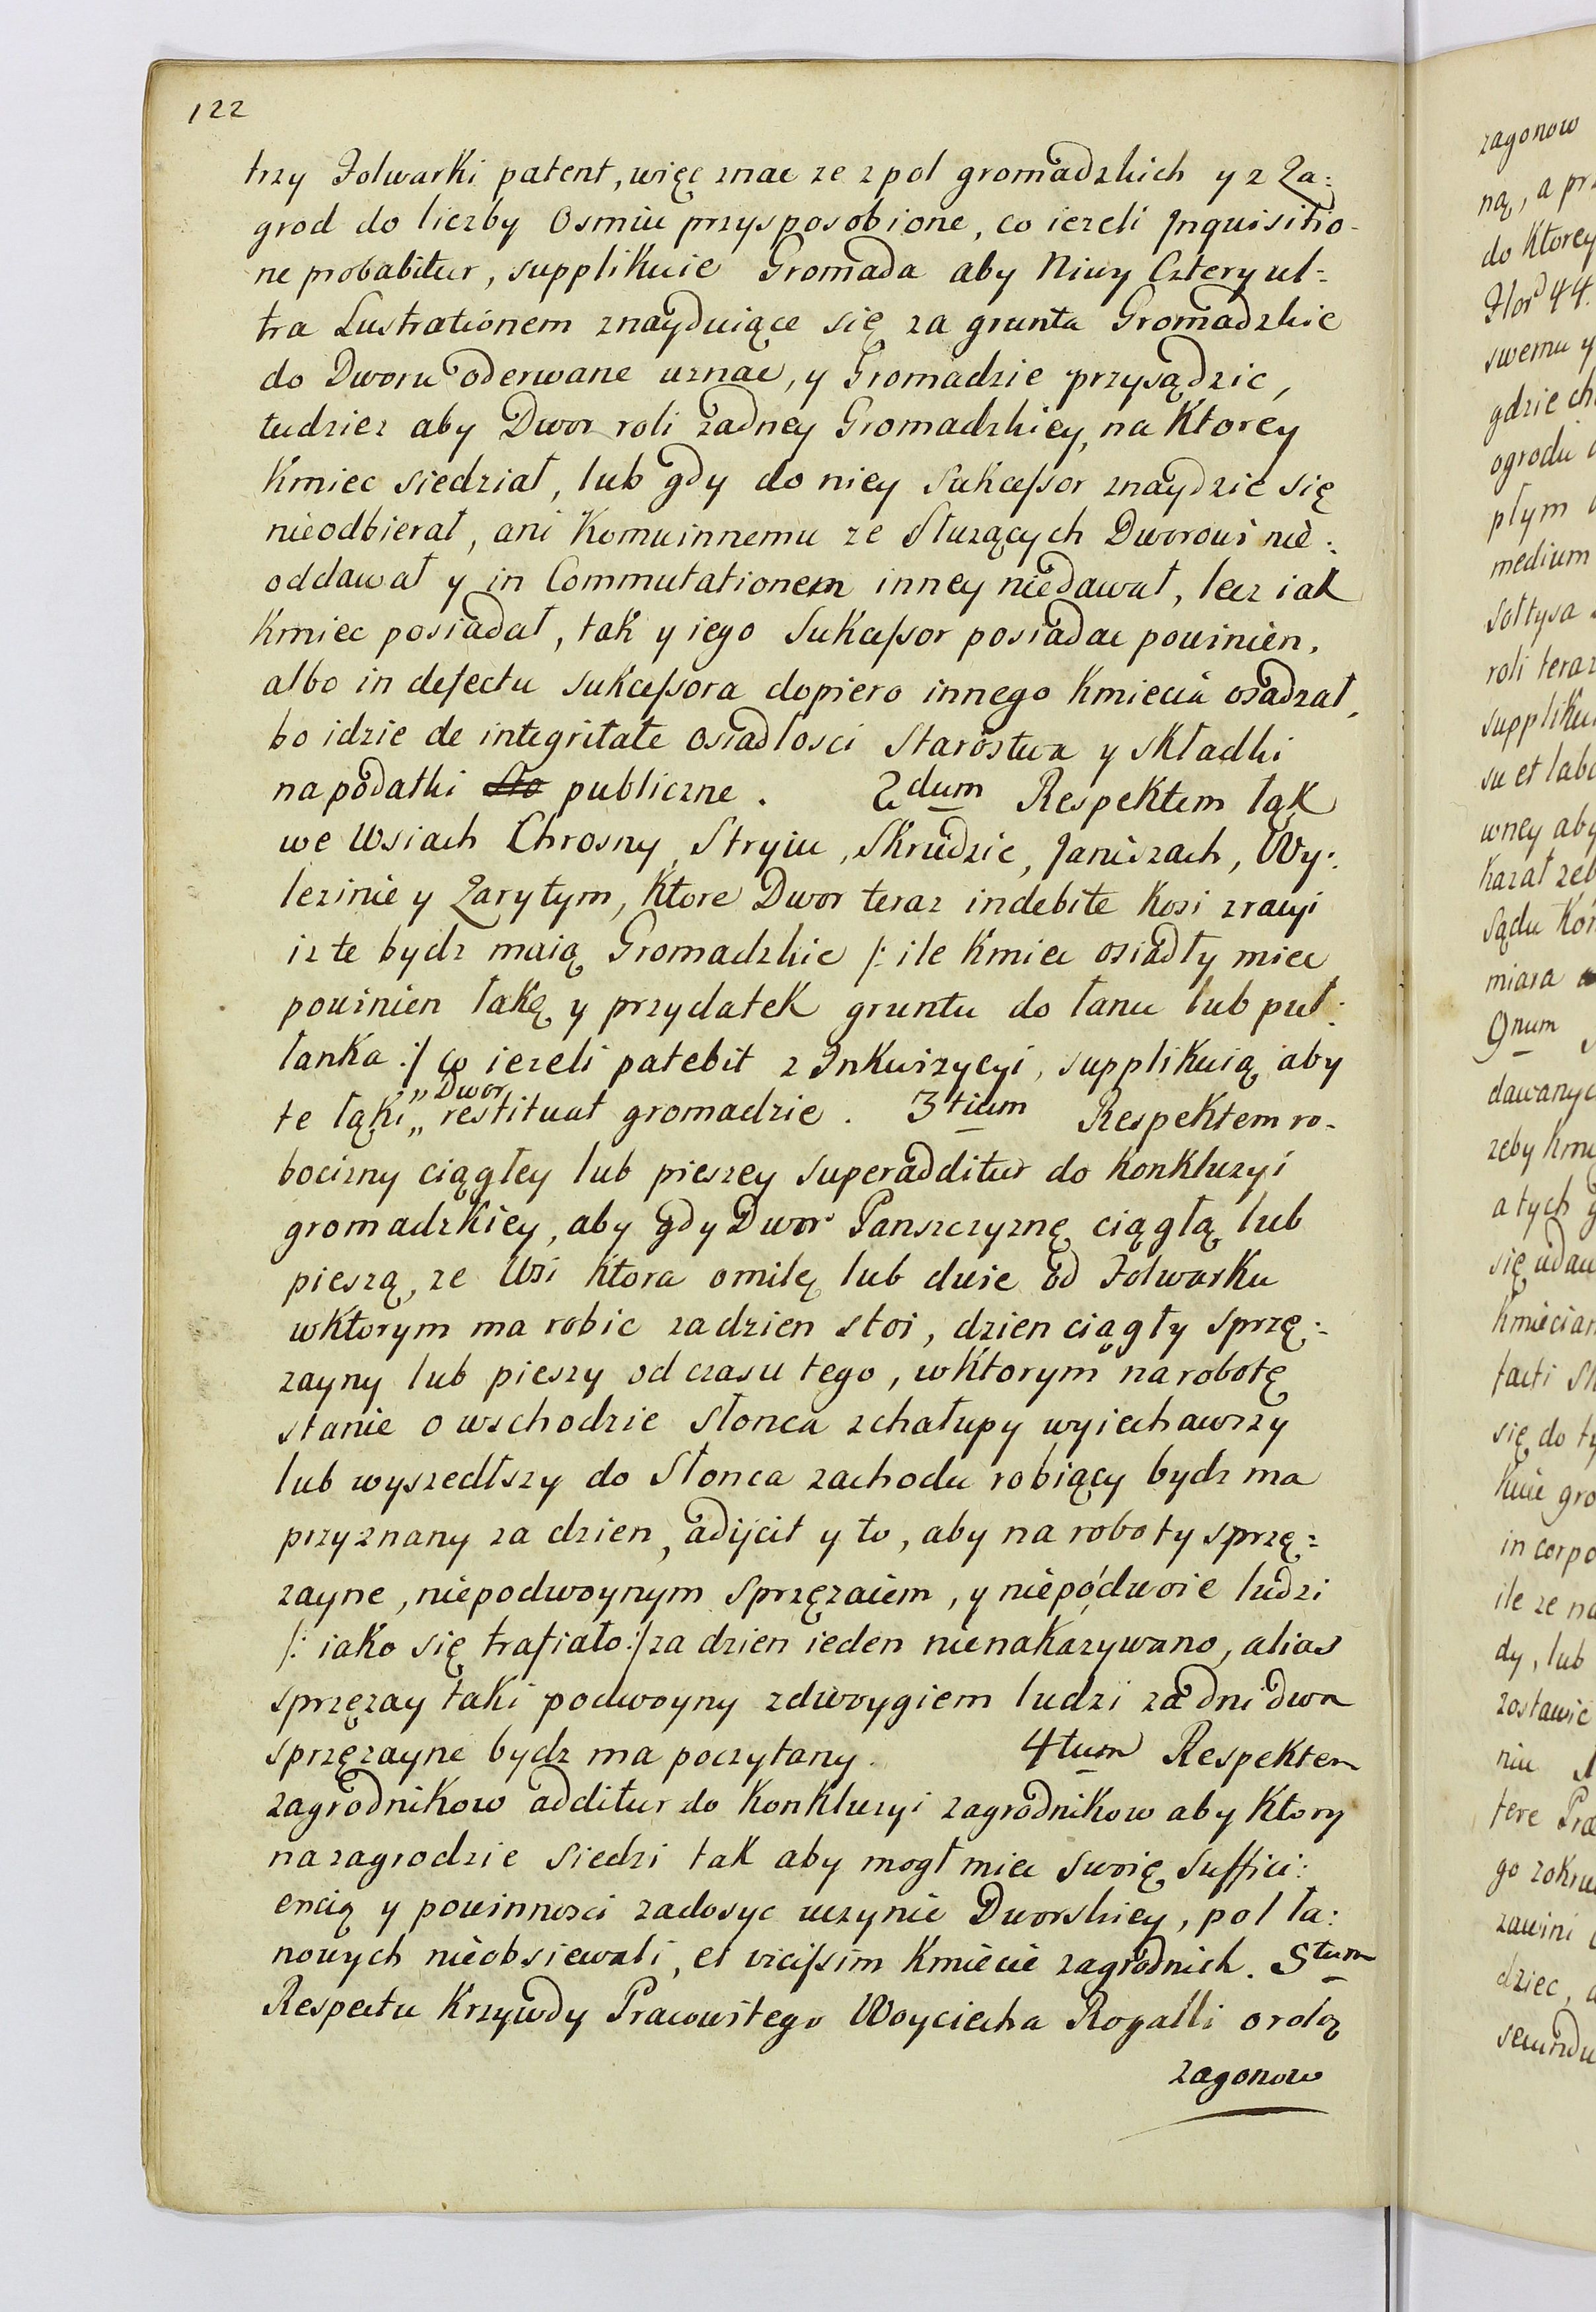 122
trzy Folwarki patent, więc znac ze z pol gromadzkich y z Za:
grod do liczby Osmiu przysposobione, co iezeli Inquisitio-
ne probabitur, supplikuie Gromada aby Niwy Cztery ul=
tra Lustrationem znayduiące się za grunta Gromadzkie
do Dworu oderwane uznac, y Gromadzie przysądzic,
tudziez aby Dwor roli zadney Gromadzkiey, na Ktorey
Kmiec siedział, lub gdy do niey Sukcessor znaydzie się
nieodbierał, ani Komuinnemu ze Słuzących Dworowi nie:
oddawał y in Commutationem inney niedawał, lecz iak
Kmiec posiadał, tak y iego Sukcessor posiadac powinien,
albo in defectu sukcessora dopiero innego Kmiecia osadzał,
bo idzie de integritate osiadłosci Starostwa y składki
na podatki publiczne. 2dum Respektem łąk
we Wsiach Chrosny, Stryiu, Skrudzie, Janiszach, Wy:
lezinie y Zarytym, Ktore Dwor teraz indebite Kosi z racyi
iz te bydz maią Gromadzkie /: ile Kmiec osiadły miec
powinien łakę y przydatek gruntu do łanu lub puł:
łanka :/ co iezeli patebit z Inkwizycyi, supplikuią aby
te łąki „Dwor„ restituał gromadzie. 3tium Respektem ro-
bocizny ciągłey lub pieszey superadditur do Konkluzyi
gromadzkiey, aby gdy Dwor Panszczyznę ciągłą lub
pieszą, ze Wsi Ktora omilę lub dwie od Folwarku
wktorym ma robic zadzien stoi, dzien ciągły sprzę:
zayny lub pieszy od czasu tego, wktorym na robotę
stanie o wschodzie Słonca z chałupy wyiechawszy
lub wyszedłszy do Słonca zachodu robiący bydz ma
przyznany za dzien, adijcit y to, aby na roboty sprzę:
zayne, niepodwoynym Sprzęzaiem, y niepódwoie ludzi
/: iako się trafiało :/ za dzien ieden nienakazywano, alias
sprzęzay taki podwoyny zdwoygiem ludzi za dni dwa
sprzęzayne bydz ma poczytany. 4tum Respektem
zagrodnikow additur do Konkluzyi zagrodnikow aby Ktory
na zagrodzie siedzi tak aby mogł miec swoię suffici:
encią y powinnosci zadosyc uczynic Dworskiey, pol ła:
nowych nieobsiewali, et vicissim Kmiecie zagrodnich. 5tum
Respectu Krzywdy Pracowitego Woyciecha Rogalli o rolą
zagonow